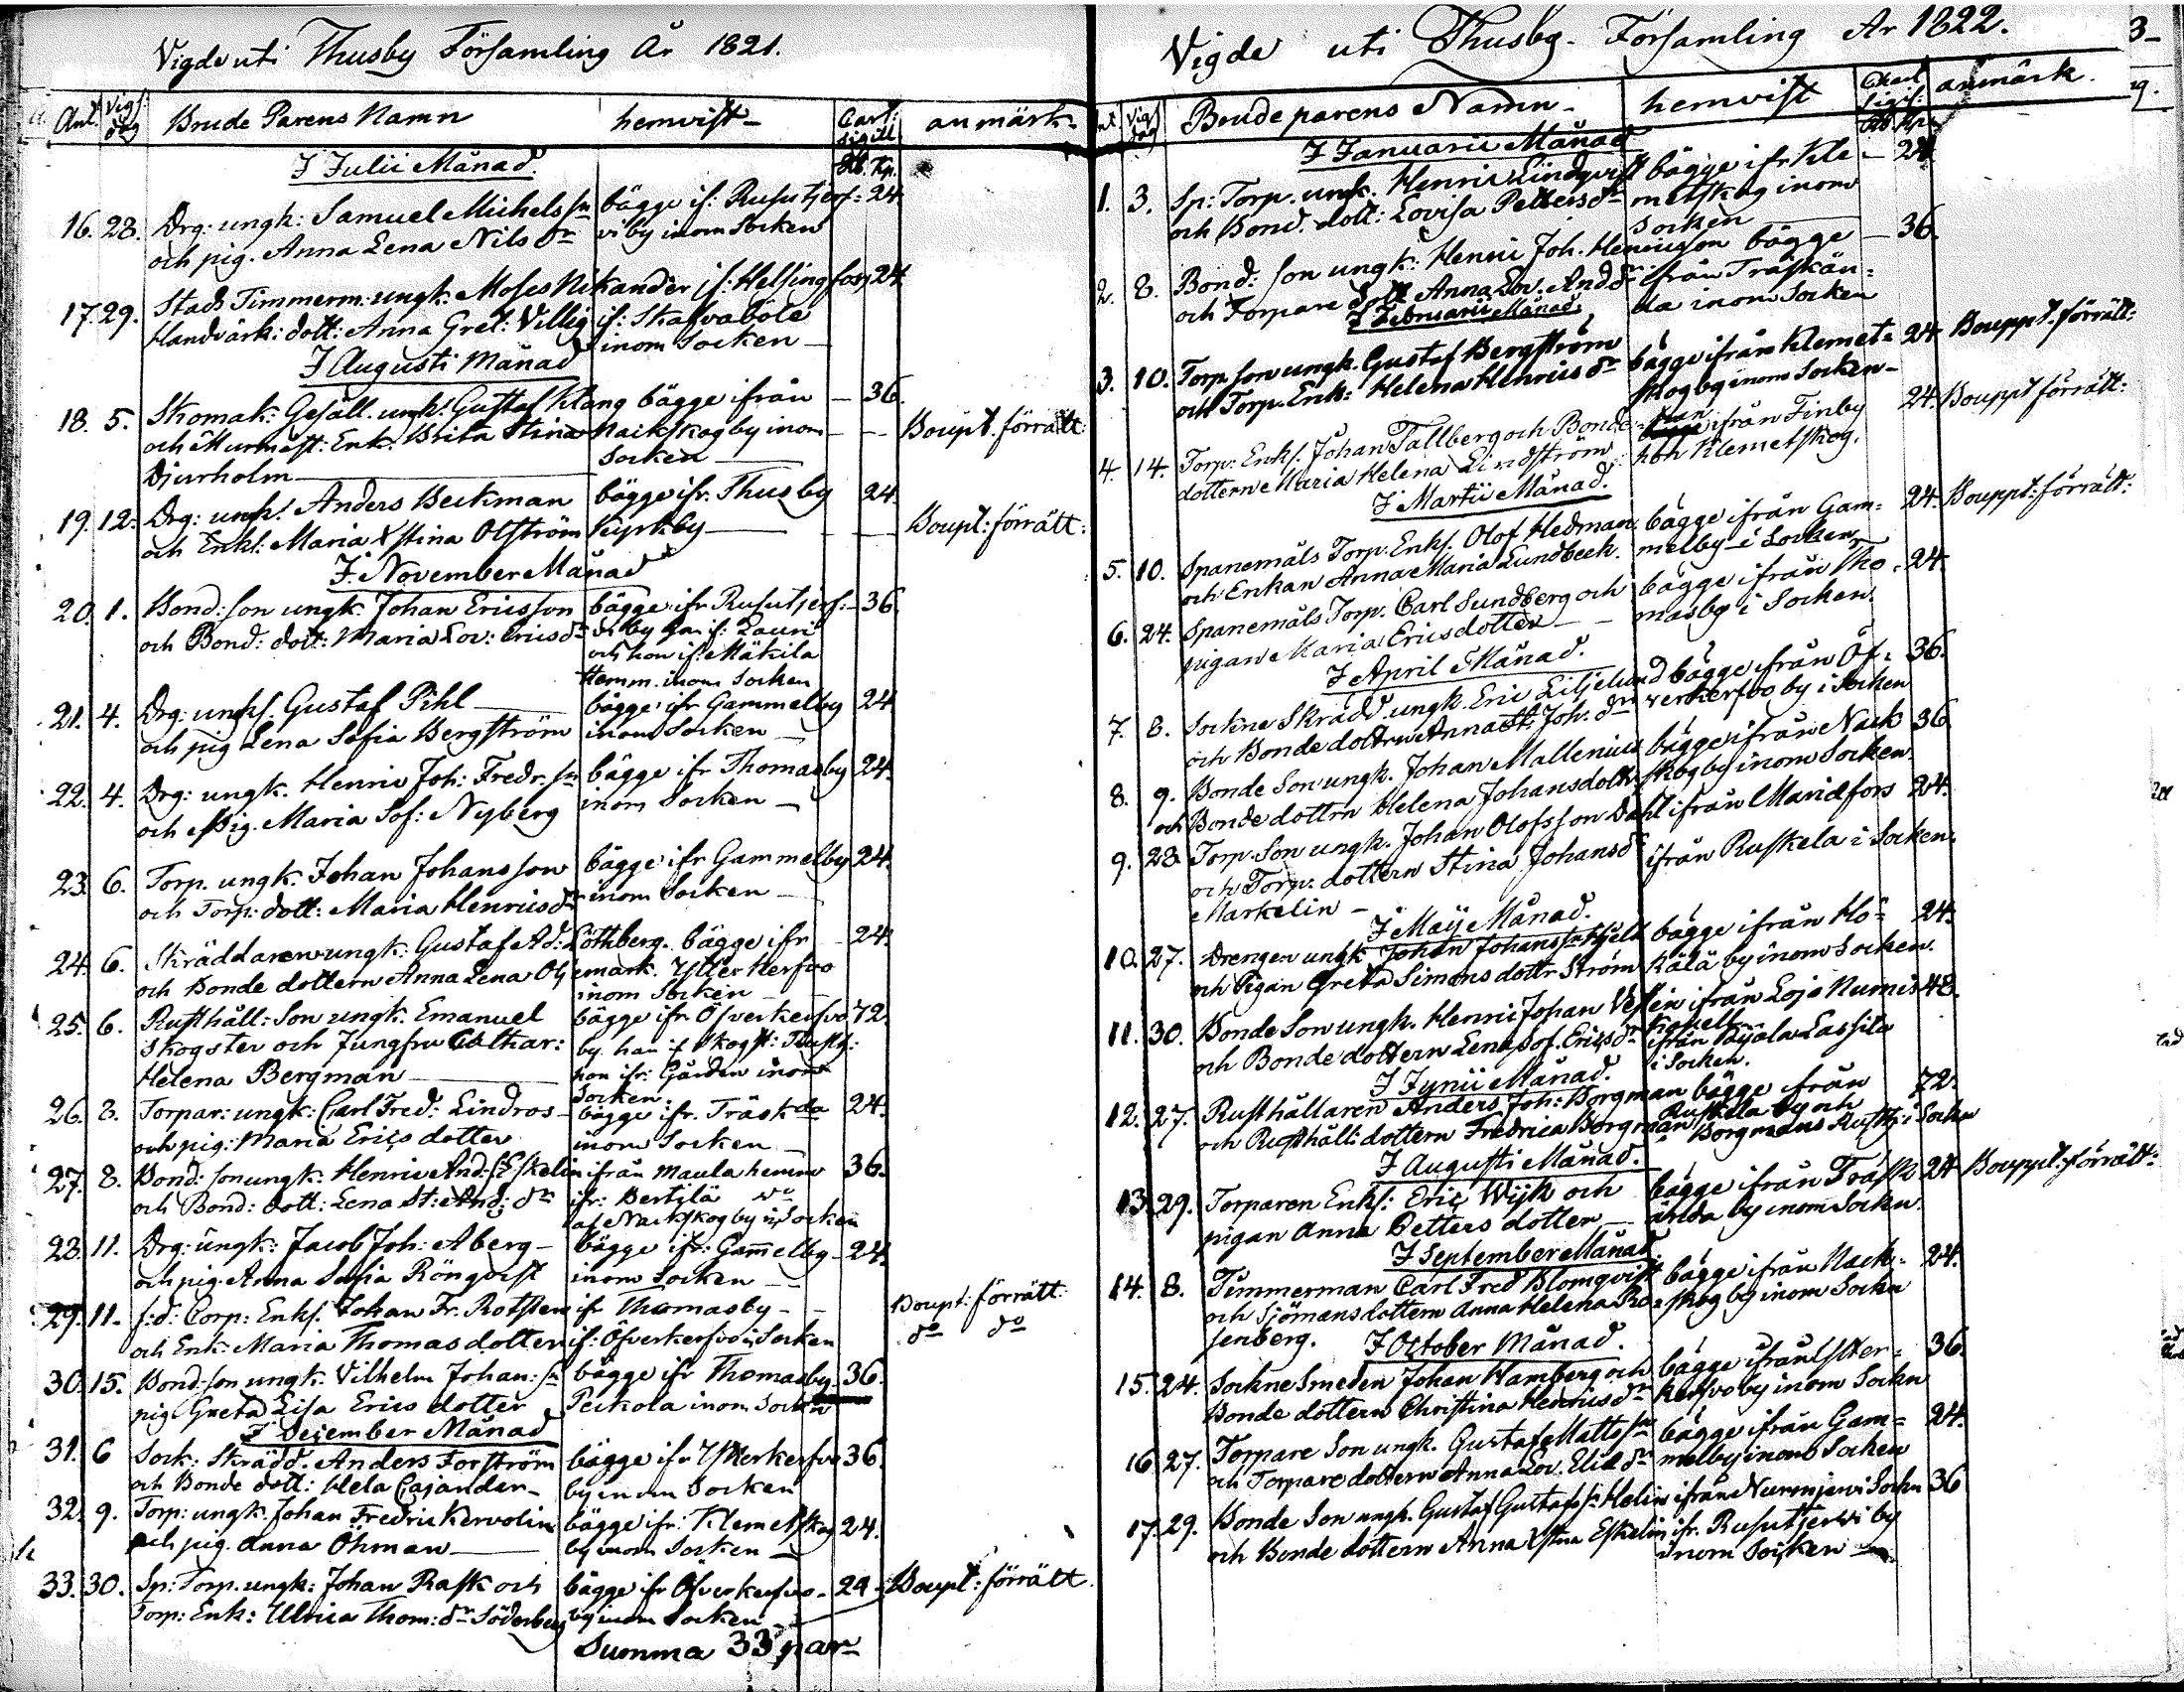 Vigde uti Thusby Församling År 1821.
Ant. Vigs: dag Brude Parens Namn hemvist Cart: sigill anmärk:
Rb. Kp.
I Julii Månad.
16. 28. Drg: ungk: Samuel Michels sn bägge if: Rusutjerf: 24.
och pig. Anna Lena Nils dr vi by inom Socken
17. 29. Stads Timmerm: ungk: Moses Nikander if: Helsingfors 24.
Handvärk: dott: Anna Gret: Villig if: Skafvaböle
inom Socken
I Augusti Månad
18. 5. Skomak: Gesäll. ungk: Gustaf Klang bägge ifrån 36.
och Murmäst: Enk. Brita Stina Nackskog by inom Boupt. förrätt:
Djurholm Socken
19. 12. Drg: ungk: Anders Beckman bägge ifr. Thusby 24.
och Enk: Maria Xstina Olström Kyrkby Boupt: förrätt:
I November Månad
20. 1. Bond: son ungk. Johan Ericsson bägge ifr Rusutjerf: 36.
och Bond: dott: Maria Lov: Erics dr vi by han if: Lauri
och hon if: Mäkilä
Hemm. inom Socken
21. 4. Drg: ungk. Gustaf Pihl bägge ifr Gammelby 24
och pig Lena Sofia Bergström inom Socken
22. 4. Drg: ungk. Henric Joh: Fredr. sn bägge ifr Thomasby 24.
och Pig. Maria Sof: Nyberg inom Socken
23. 6. Torp. ungk. Johan Johansson bägge ifr Gammelby 24.
och Torp: dott: Maria Henrics dr inom Socken
24. 6. Skräddaren ungk: Gustaf Ad: Löthberg. bägge ifr 24.
och Bonde dottern Anna Lena Oljemark. Ytterkerfvo
inom Socken
25. 6. Rusthåll: Son ungk. Emanuel bägge ifr Öfverkerfvo 72.
Skogster och Jungfru Cathar: by. han if Skogst: Rusth:
Helena Bergman hon ifr: Gården inom
Socken.
26. 8. Torpar: ungk: Carl Fred: Lindros bägge ifr. Träskda 24.
och pig: Maria Erics dotter inom Socken
27. 8. Bond: son ungk: Henric And: sn Eskelin ifrån Maula hemm 36.
och Bond: dott: Lena St: And: dr ifr: Bertylä do
af Nackskog by i Socken
28. 11. Drg: ungk: Jacob Joh: Aberg bägge ifr: Gamelby 24.
och pig. Anna Sofia Rönqvist inom Socken
29. 11. f:d: Corp: Enk. Johan Fr. Rotsten if Thomasby Boupt: förrätt:
och Enk: Maria Thomas dotter if: Öfverkerfvo i Socken do do
30. 15. Bond: son ungk. Vilhelm Johan: sn bägge ifr Thomasby 36.
pig Greta Lisa Erics dotter Peckola inom Socken
I December Månad
31. 6 Sock: Skrädd. Anders Forström bägge ifr Ytterkerfvo 36.
och Bonde dott: Hela Cajander by inom Socken
32. 9. Torp: ungk. Johan Fredric Kervolin bägge ifr: Klemetskog 24.
och pig. Anna Öhman by inom Socken
33. 30. Sp: Torp. ungk: Johan Rask och bägge ifr Öfverkerfvo 24 Boupt: förrätt
Torp: Enk: Ulrica Thom: dr Söderberg by inom Socken
Summa 33 par
Vigde uti Thusby Församling År 1822.
Vigs dag Brude parens Namn hemvist Chart sigil: anmärk.
Rb. Kp.
I Januarii Månad
1. 3. Sp: Torp. ungk. Henric Lindqvist bägge ifr Kle 24
och Bond. dott: Lovisa Petters dr metskog inom
Socken
2. 8. Bond: son ungk: Henric Joh. Henricson bägge 36.
och Torpare dott Anna Lov. And. dr ifrån Träskän:
I Februarii Månad. da inom Socken
3. 10. Torp. son ungk. Gustaf Bergström bägge ifrån Klemet: 24. Bouppt. förrätt:
och Torp. Enk: Helena Henrics dr skog by inom Socken
4. 14. Torp: Enkl. Johan Tallberg och Bonde han ifrån Finby 24. Bouppt förrätt:
dottern Maria Helena Lindström hon Klemetskog.
I Martii Månad.
5. 10. Spanemåls Torp. Enkl. Olof Hedman bägge ifrån Gam= 24. Bouppt: förrätt:
och Enkan Anna Maria Lundbeck. melby i Socken
6. 24. Spanemåls Torp. Carl Sundberg och bägge ifrån Tho 24.
pigan Maria Ericsdotter masby i Socken.
I April Månad.
7. 8. Sockne Skrädd. ungk. Eric Liljelund bägge ifrån Öf= 36.
och Bonde dottern Anna St. Joh. dr verkerfvo by i Socken
8. 9. Bonde Son ungk. Johan Mallenius bägge ifrån Nack 36
och Bonde dottrn Helena Johansdottr skog by inom Socken.
9. 28 Torp. Son ungk. Johan Olofsson Dahl ifrån Mariefors 24.
och Torp. dottern Stina Johans dr ifrån Ruskela i Socken.
Markelin
I Maij Månad.
10. 27. Drengen ungk Johan Johans sn Hjelt bägge ifrån Hö= 24.
och Pigan Greta Simons dottr Ström kälä by inom Socken.
11. 30. Bonde Son ungk. Henric Johan ifrån Lojo Numis 48.
och Bonde dottern Lena Sof. Erics dr Kapell
ifrån Lassila
i Socken.
I Iynii Månad.
12. 27. Rusthållaren Anders Joh: Borgman bägge ifrån 72.
och Rusthåll: dottern Fredrica Borgman Ruskela by och
Borgmans Rusth: i Socken
I Augusti Månad.
13. 29. Torparen Enkl: Eric Wijk och bägge ifrån Träsk 24 Bouppt: förrätt:
pigan Anna Petters dotter ända by inom Socken.
I September Månad
14. 8. Timmerman Carl Fred Blomqvist bägge ifrån Nack= 24.
och Sjömans dottern Anna Helena Ro= skog by inom Sockn
senberg. I October Månad.
15. 24. Sockne Smeden Johan Hamberg och bägge ifrån Ytter= 36.
Bonde dottern Christina Henrics dr Kerfvo by inom Sockn
16 27. Torpare Son ungk. Gustaf Matts sn bägge ifrån Gam= 24.
och Torpare dottern Anna Lov. Elias dr melby inom Socken
17. 29. Bonde Son ungk. Gustaf Gustafs sn Helin ifrån Nurmjervi Sockn 36
och Bonde dottern Anna Xstina Eskelin ifr. Rusutjerfvi by
inom Socken